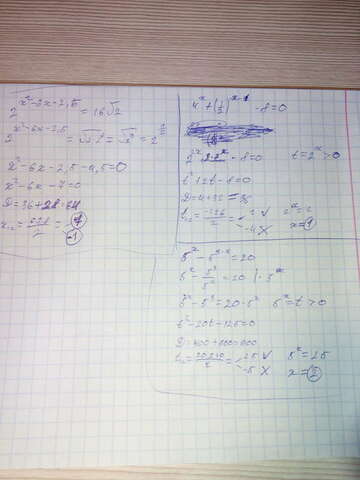 2^(x²-6x-2,5) = 16√2
2^(x²-6x-2,5) = √2⁸·2 = √2⁹ = 2^(9/2)
x²-6x-2,5-4,5=0
x²-6x-7=0
D=36+28=64
x₁,₂ = (6±8)/2 = 7
-1
4^x + (1/2)^(x-1) - 8=0
-8=0 t=2^x>0
t²+2t-8=0
D=4+32=36
t₁,₂ = (-2±6)/2 = 2 V 2^x=2
-4 X x=1
5^x - 5^(3-x) =20
5^x - 5³/5^x = 20 |·5^x
5^x=t>0
t²-20t-125=0
D=400+500=900
t₁,₂ = = 25 V 5^x=25
-5 X x=2